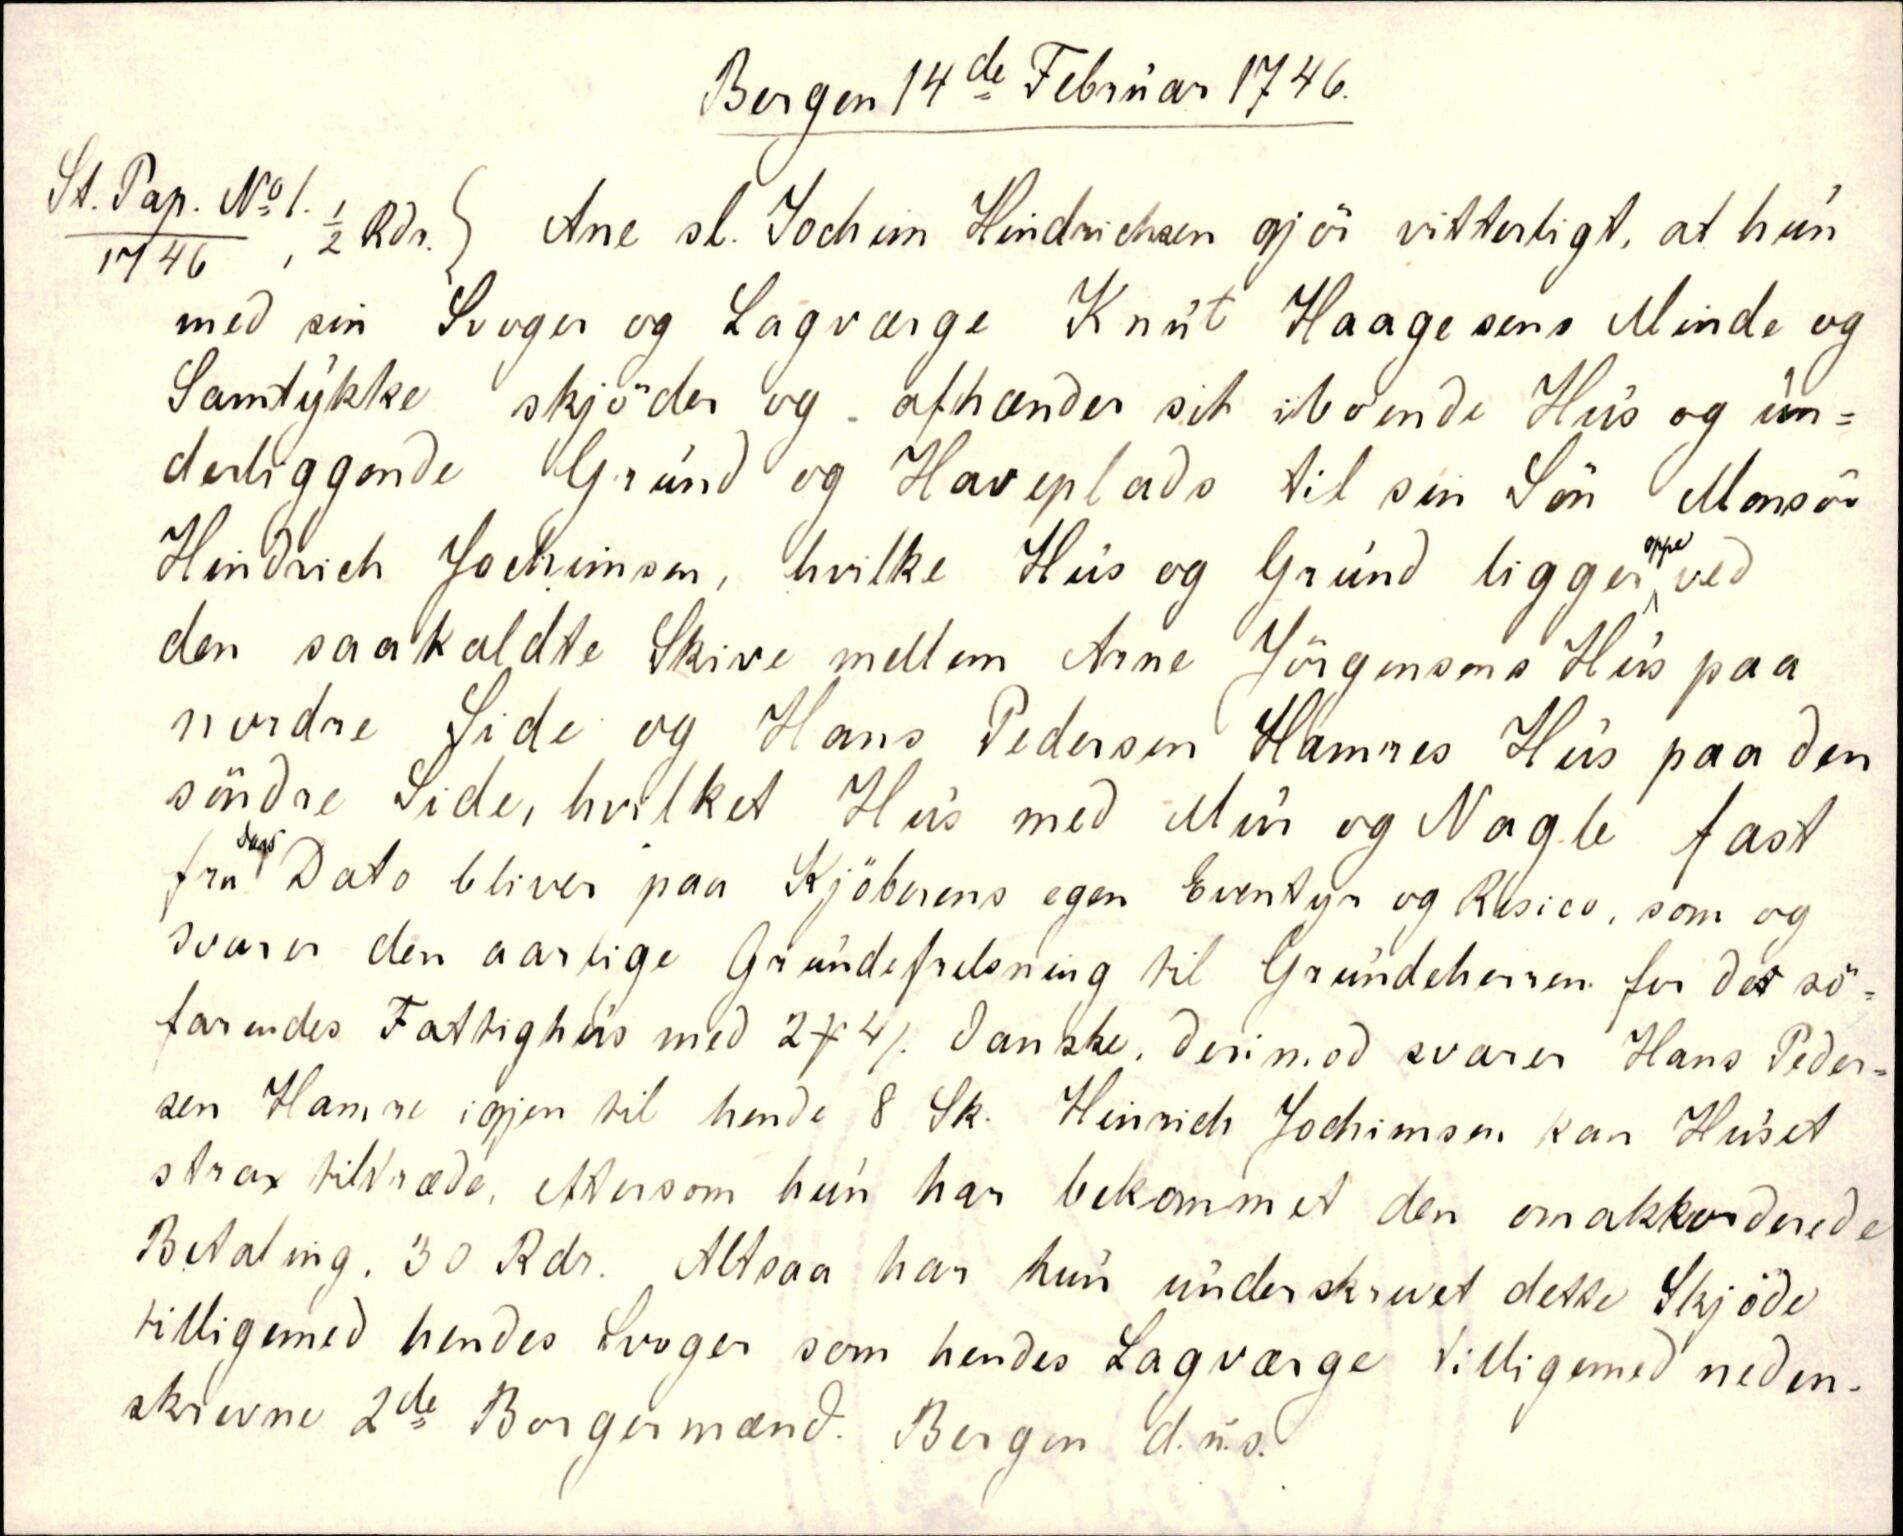 Bergen 14de Februar 1746.
St. Pap. No 1. 1/2 Rdr. } Ane sl. Jochim Hindrichsen gjör vitterligt, at hun
1746,
med sin Svoger og Lagværge Knut Haagesens Minde og
Samtykke skjöder og afhænder sit iboende Hus og un=
derliggende Grund og Haveplads til sin Sön Monsör
Hindrich Jochimsen, hvilke Hus og Grund ligger oppe ved
den saakaldte Skive mellem Arne Jörgensens Hus paa
nordre Side og Hans Pedersen Hamres Hus paa den
söndre Side, hvilket Hus med Mur og Nagle fast
fra dags Dato bliver paa Kjöberens egen Eventyr og Risico, som og
svarer den aarlige Grundefrelsning til Grundeherren for det sö=
farendes Fattighus med 2 # 4 /. danske. derimod svarer Hans Peder=
sen Hamre igjen til hende 8 Sk. Heinrich Jochimsen kan Huset
strax tiltræde, eftersom hun har bekommet den omakkorderede
Betaling. 30 Rdr. Altsaa har hun underskrevet dette Skjöde
tilligemed hendes Svoger som hendes Lagværge tilligemed neden-
skrevne 2de Borgermænd. Bergen d. u. s.